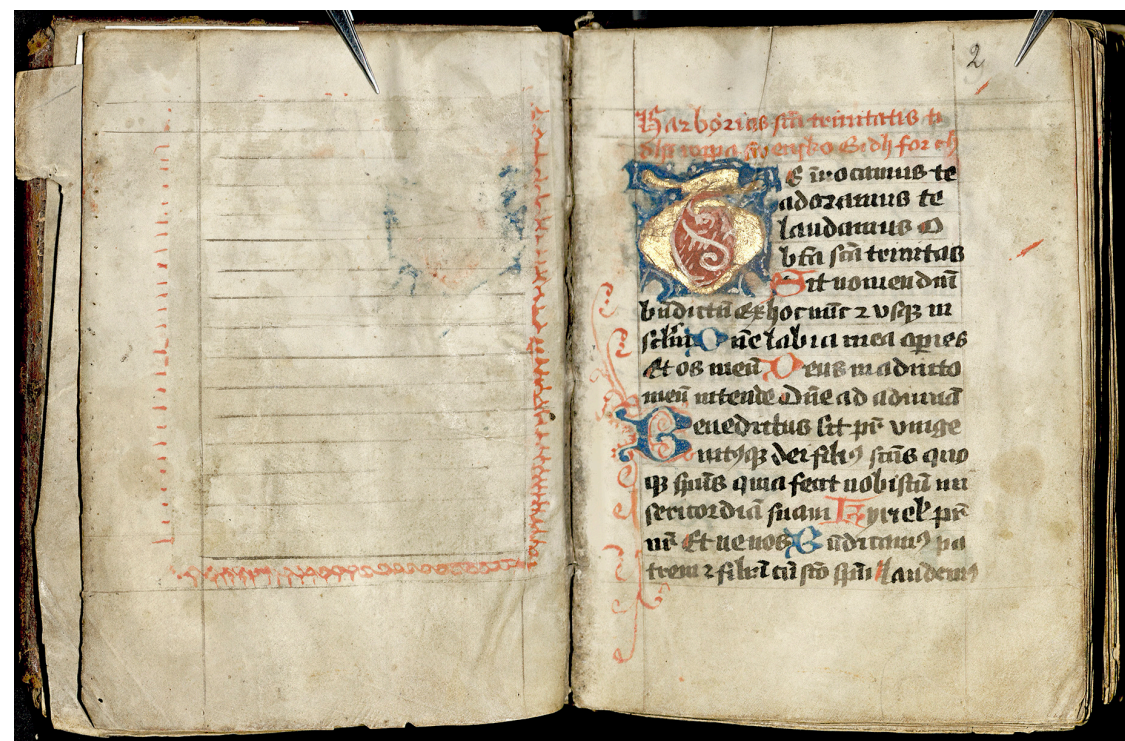 2
Har borias scī trinitatis ti
dhr oppa swensko Gudh for eh
TE īuocamus te
adoramus te
laudamus O
bēa scā trinitas
Sit nomen dnī
bn̄dictū Ex hoc nūc ⁊ vsqꝫ in
sclm̄ Dn̄e labia mea aꝑies
Et os meū Deus in adiuto
meū intende Dn̄e ad adiuuā
Benedictus sit pr̄ vnige
nitꝰqꝫ dei filiꝰ scūs quo
qꝫ spūs quia fecit nobiscū mi
sericordiā suam Kyriel pr̄
nr̄ Et ne nos Bn̄dicamꝰ pa
trem ⁊ filiū cū scō spū Laudemꝰ